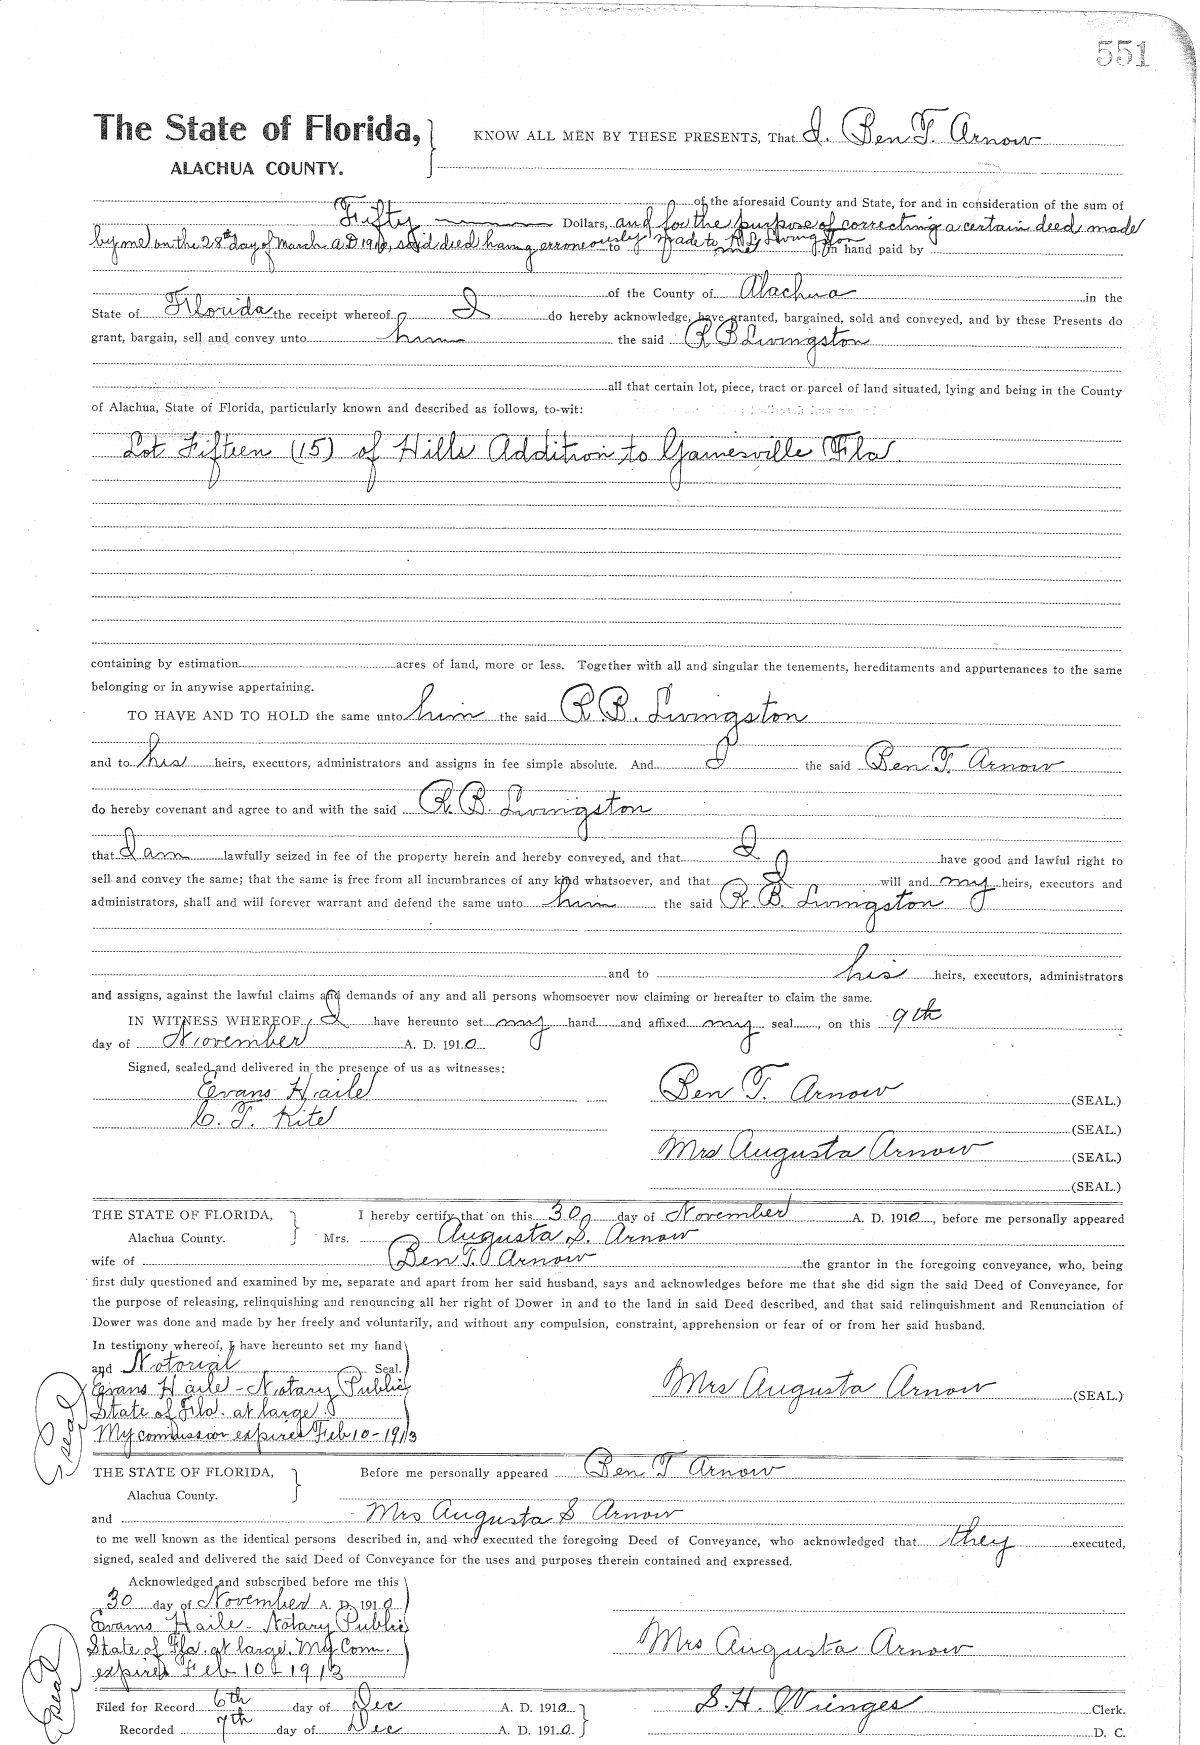 551
The State of Florida, KNOW ALL MEN BY THESE PRESENTS, That I, Ben T. Arnow
ALACHUA COUNTY.
of the aforesaid County and State, for and in consideration of the sum of
Fifty Dollars, and for the purpose of correcting a certain deed made
by me on the 28th day of March A.D 1910, said deed having erroneously made to Livingston
to me in hand paid by
of the County of Alachua in the
State of Florida the receipt whereof I do hereby acknowledge, have granted, bargained, sold and conveyed, and by these Presents do
grant, bargain, sell and convey unto him the said R B Livingston
all that certain lot, piece, tract or parcel of land situated, lying and being in the County
of Alachua, State of Florida, particularly known and described as follows, to-wit:
Lot Fifteen (15) of Hills Addition to Gainesville Fla
containing by estimation acres of land, more or less. Together with all and singular the tenements, hereditaments and appurtenances to the same
belonging or in anywise appertaining.
TO HAVE AND TO HOLD the same unto him the said R.B. Livingston
and to his heirs, executors, administrators and assigns in fee simple absolute. And I the said Ben T. Arnow
do hereby covenant and agree to and with the said R. B. Livingston
that I am lawfully seized in fee of the property herein and hereby conveyed, and that I have good and lawful right to
sell and convey the same; that the same is free from all incumbrances of any kind whatsoever, and that I will and my heirs, executors and
administrators, shall and will forever warrant and defend the same unto him the said R. B. Livingston
and to his heirs, executors, administrators
and assigns, against the lawful claims and demands of any and all persons whomsoever now claiming or hereafter to claim the same.
IN WITNESS WHEREOF, I have hereunto set my hand and affixed my seal, on this 9th
day of November A. D. 1910
Signed, sealed and delivered in the presence of us as witnesses:
Evans Haile Ben T. Arnow (SEAL.)
C. T. Kite (SEAL.)
Mrs Augusta Arnow (SEAL.)
(SEAL.)
THE STATE OF FLORIDA, I hereby certify that on this 30 day of November A. D. 1910, before me personally appeared
Alachua County. Mrs. Augusta S. Arnow
wife of Ben T. Arnow the grantor in the foregoing conveyance, who, being
first duly questioned and examined by me, separate and apart from her said husband, says and acknowledges before me that she did sign the said Deed of Conveyance, for
the purpose of releasing, relinquishing and renouncing all her right of Dower in and to the land in said Deed described, and that said relinquishment and Renunciation of
Dower was done and made by her freely and voluntarily, and without any compulsion, constraint, apprehension or fear of or from her said husband.
In testimony whereof, I have hereunto set my hand
and Notorial Seal.
Evans Haile - Notary Public Mrs Augusta Arnow (SEAL.)
State of Fla. at large
My commission expires Feb 10-1913
Seal
THE STATE OF FLORIDA, Before me personally appeared Ben T Arnow
Alachua County.
and Mrs Augusta S Arnow
to me well known as the identical persons described in, and who executed the foregoing Deed of Conveyance, who acknowledged that they executed,
signed, sealed and delivered the said Deed of Conveyance for the uses and purposes therein contained and expressed.
Acknowledged and subscribed before me this
30 day of November A. D. 1910
Evans Haile - Notary Public
State of Fla. at large. My Com. Mrs Augusta Arnow
expires Feb 10 - 1913
Seal
Filed for Record 6th day of Dec A. D. 1910 S.H. Wienges Clerk.
Recorded 7th day of Dec A. D. 1910 D. C.